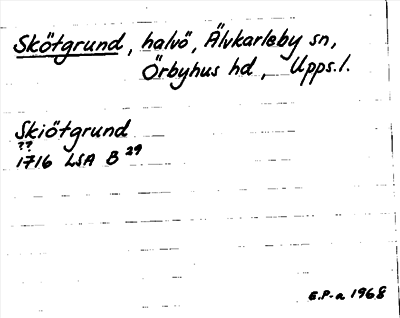 Skötgrund, halvö, Älvkarleby sn,
Örbyhus hd, Upps.l.
Skiötgrund
??
1716 LSA B 29
E.P-a 1968